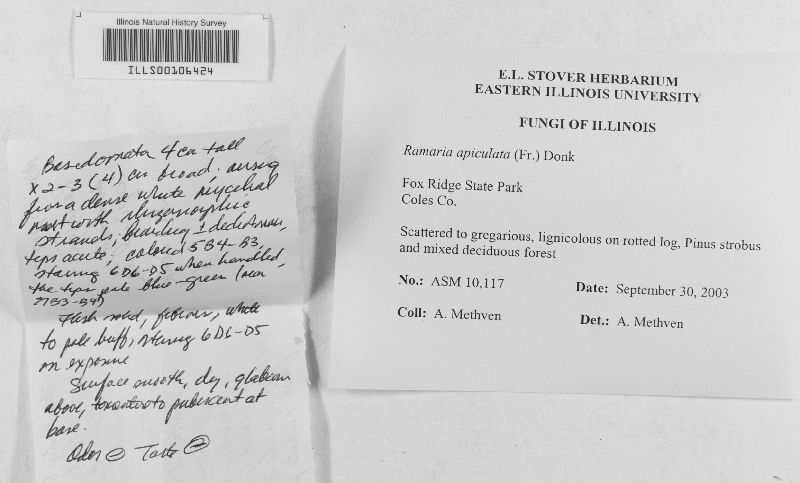 Illinois Natural History Survey
ILLS00106424
Basidiomata 4 cm tall
x 2-3 (4) cm broad; arising
from a dense white mycelial
mat with rhizomorphic
strands; branching ± dichotomous,
tips acute; colored 5B4-B3,
staining 6D6-D5 when handled
the tips pale blue-green (near
27B3-B4)
Flesh solid, fibrous, white
to pale buff, staining 6D6-D5
on exposure
Surface smooth, dry, glabrous
above, tomentose to pubescent at
base.
Odor ⊖ Taste ⊖
E.L. STOVER HERBARIUM
EASTERN ILLINOIS UNIVERSITY
FUNGI OF ILLINOIS
Ramaria apiculata (Fr.) Donk
Fox Ridge State Park
Coles Co.
Scattered to gregarious, lignicolous on rotted log, Pinus strobus
and mixed deciduous forest
No.: ASM 10,117 Date: September 30, 2003
Coll: A. Methven Det.: A. Methven